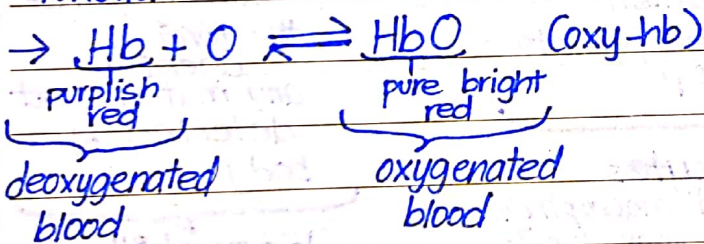 → Hb + O ⇌ HbO (oxy-hb)
purplish red pure bright red
deoxygenated blood oxygenated blood